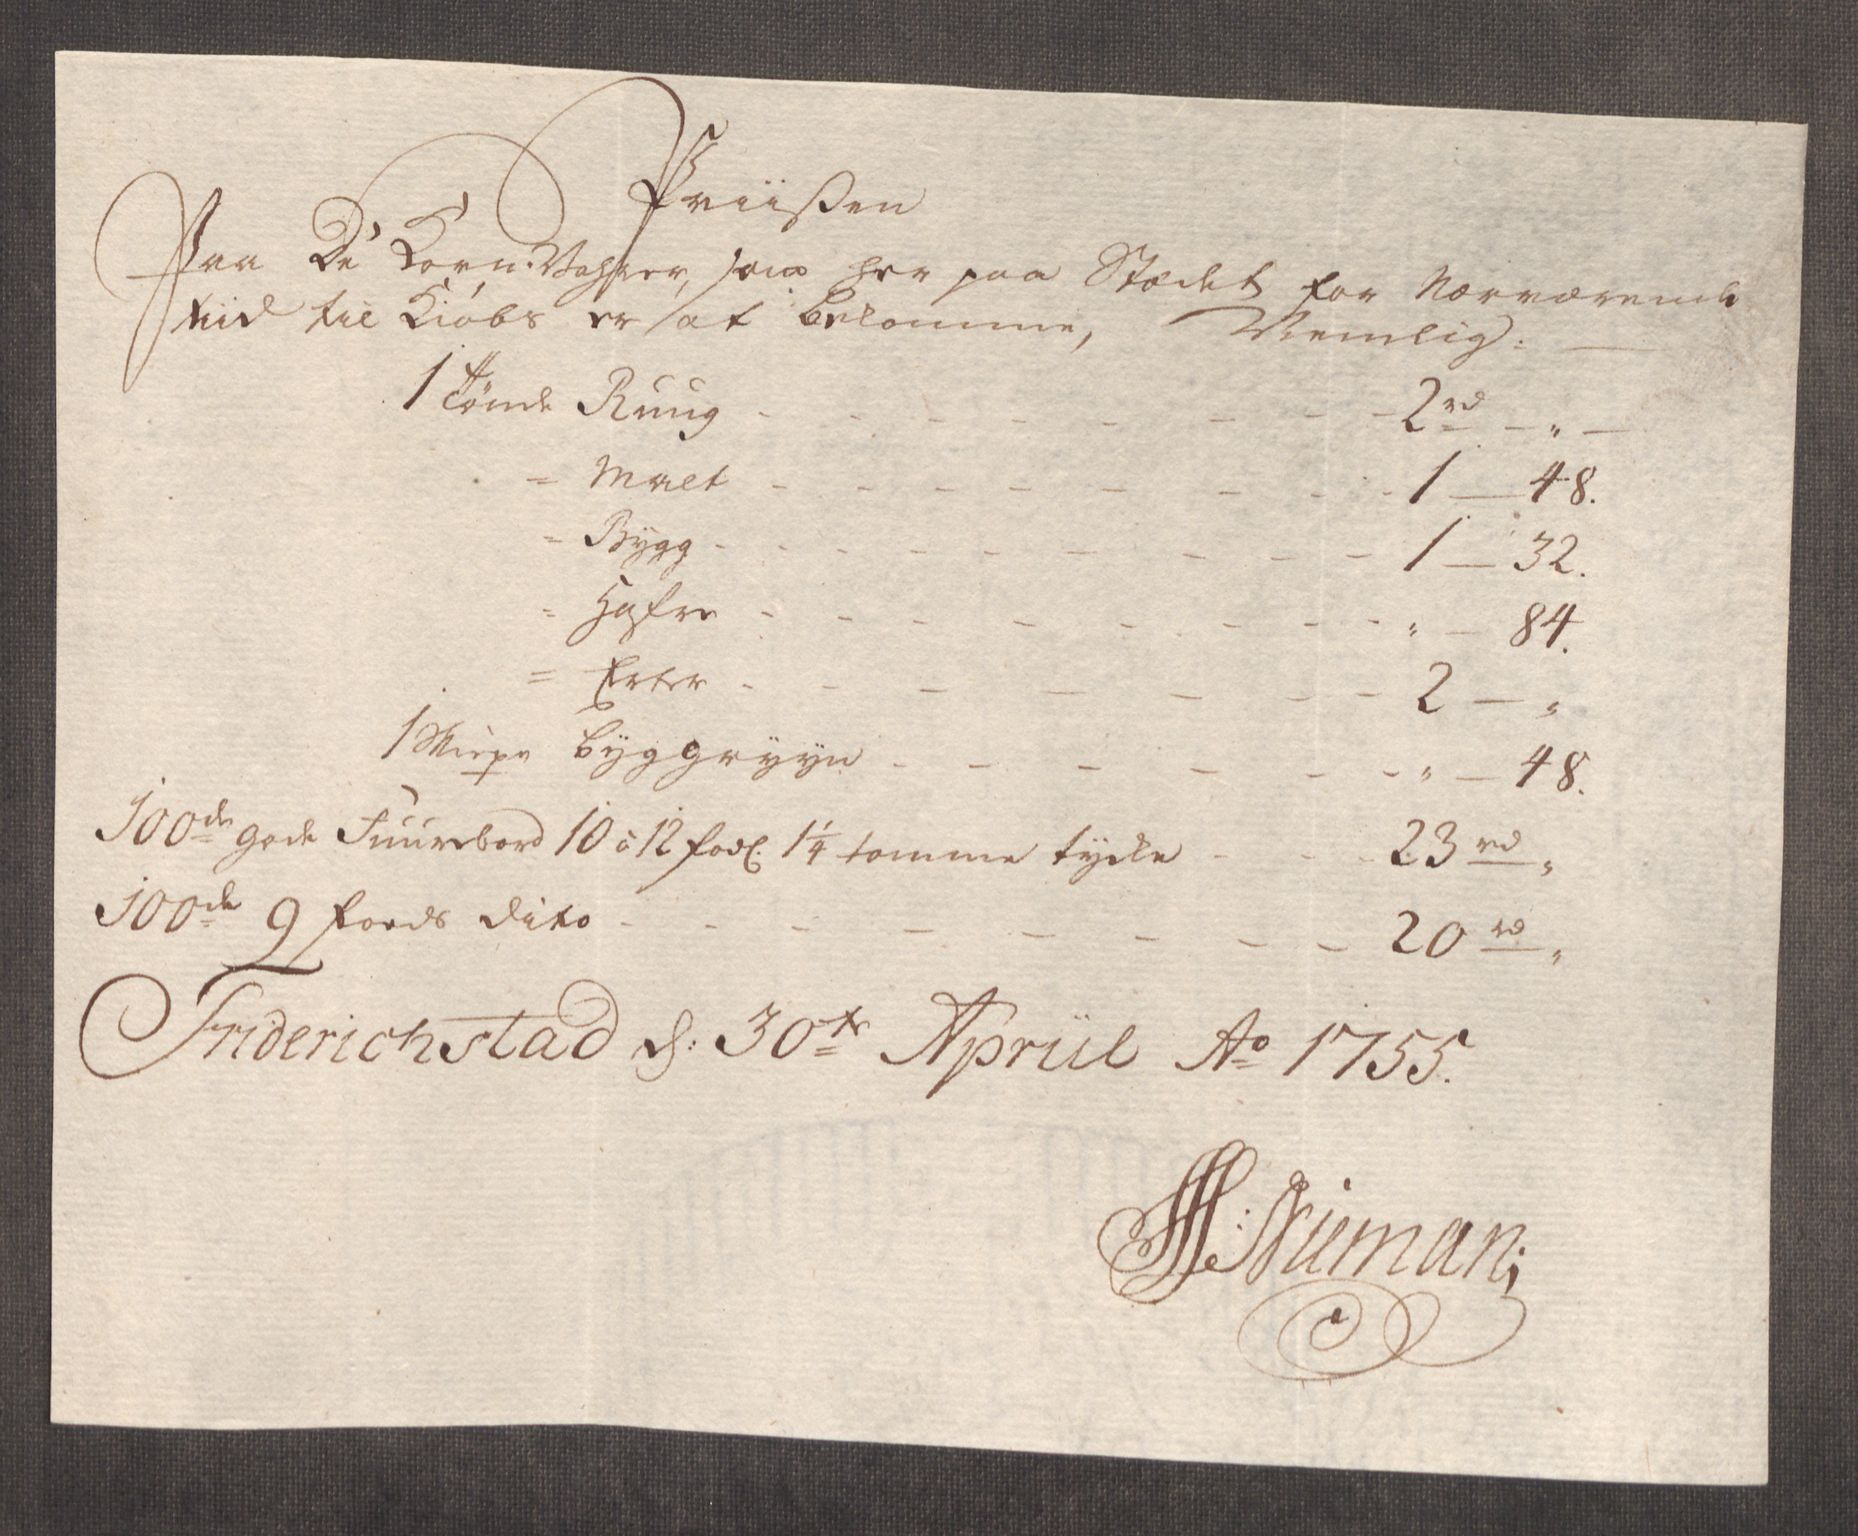 Priisen
Paa De Korn-Vahrer, som her paa Stædet for Nærværende
tiid til Kiøbs er at bekomme, Nemlig:
1 Tønde Ruug - - - - - - - - 2 rd - " -
= Malt - - - - - - - - 1 - 48.
= Bygg - - - - - - - - 1 - 32.
= Hafre - - - - - - - - " - 84.
= Erter - - - - - - - 2 - "
1 Skiepe byggryyn - - - - - - " - 48.
100de gode Fuurebord 10 à 12 fod. 1 1/4 tomme tycke - - - 23 rd "
100de 9 foeds dito - - - - - - - - 20 rd "
Friderichstad d: 30te Apriil Ao 1755.
Niiman;